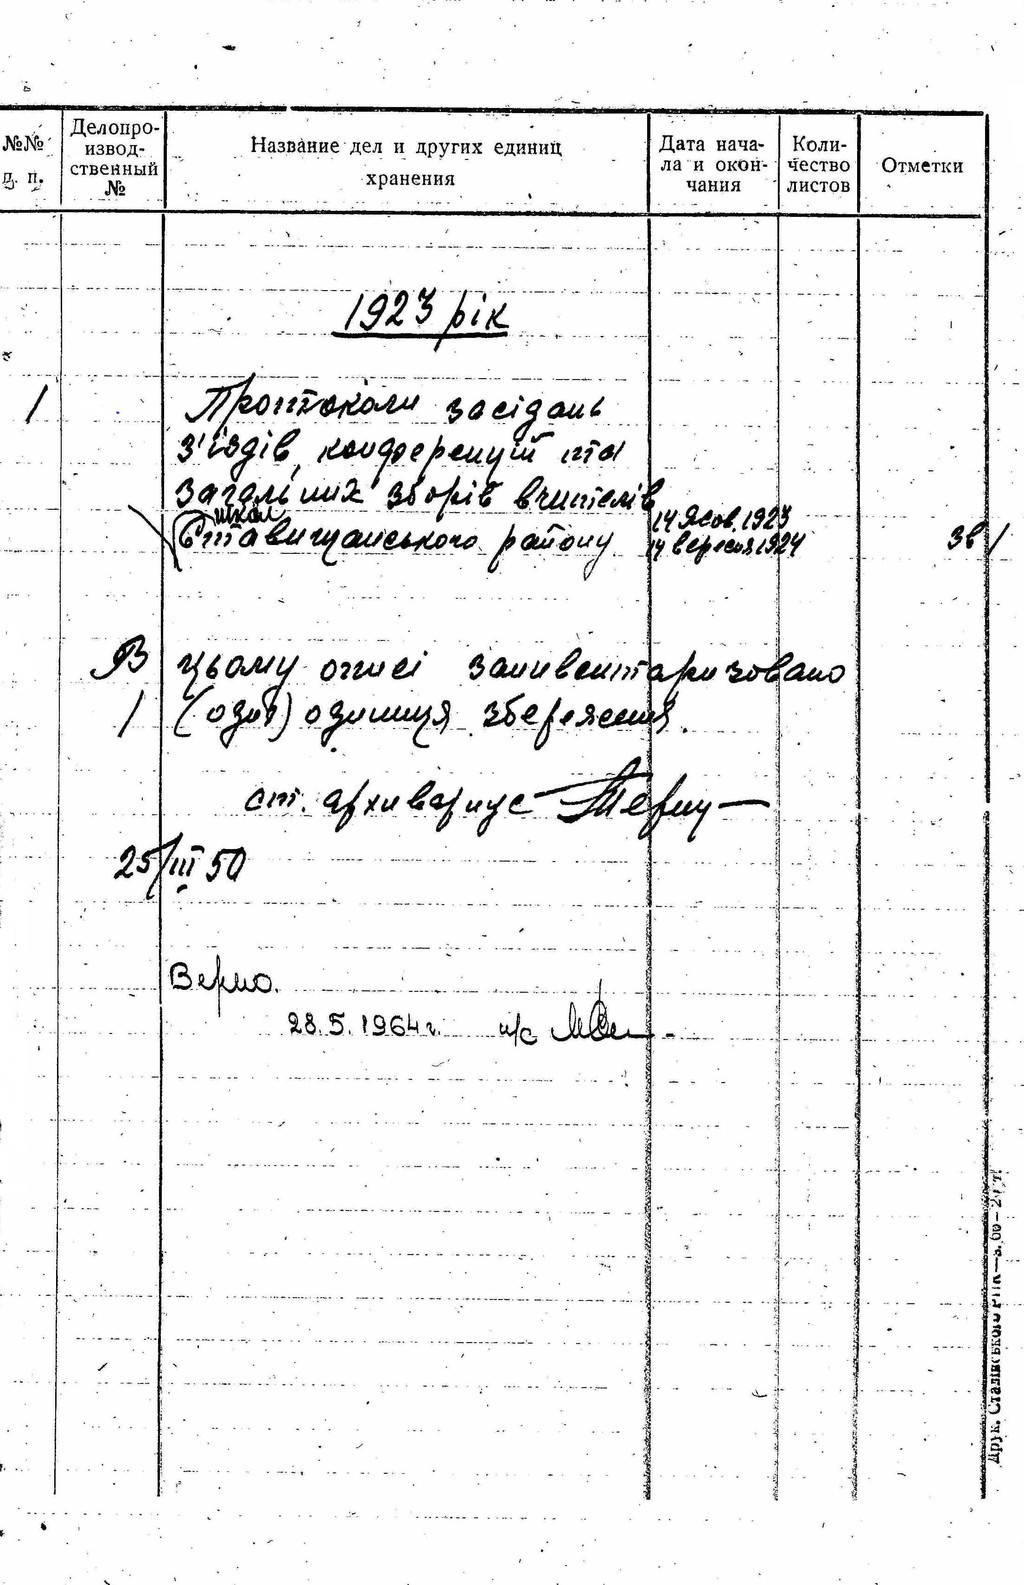 №№ п. п.
Делопро-
извод-
ственный
№
Название дел и других единиц
хранения
Дата нача-
ла и окон-
чания
Коли-
чество
листов
Отметки
1923 рік
1
Протоколи засідань
з'їздів, конференцій та
загальних зборів вчителів
шкіл
Ставищанського району
14 1923
14 вересня 1924
38
В цьому описі заинвентаризовано
1 (одна) одиниця збереження.
ст. архивариус
25/III 50
Верно.
28.5.1964 г. н/с
Друк. Сталінського